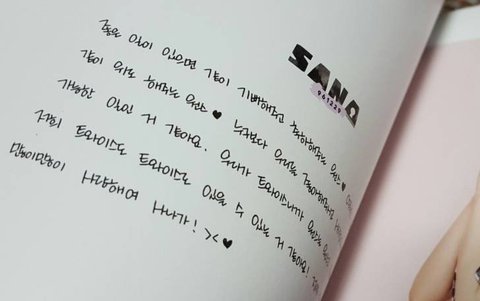 SANA
961229
좋은 일이 있으면 같이 기뻐해주고 축하해주는 원스♥
같이 위로 해주는 원스♥ 누구보다 우리를 좋아해주
가능한 일인 거 같아요. 우리가 트와이스니까 원스
저희 트와이스도 트와이스로 있을 수 있는 거 같아요!
많이많이 사랑해여 사나가! ><♥